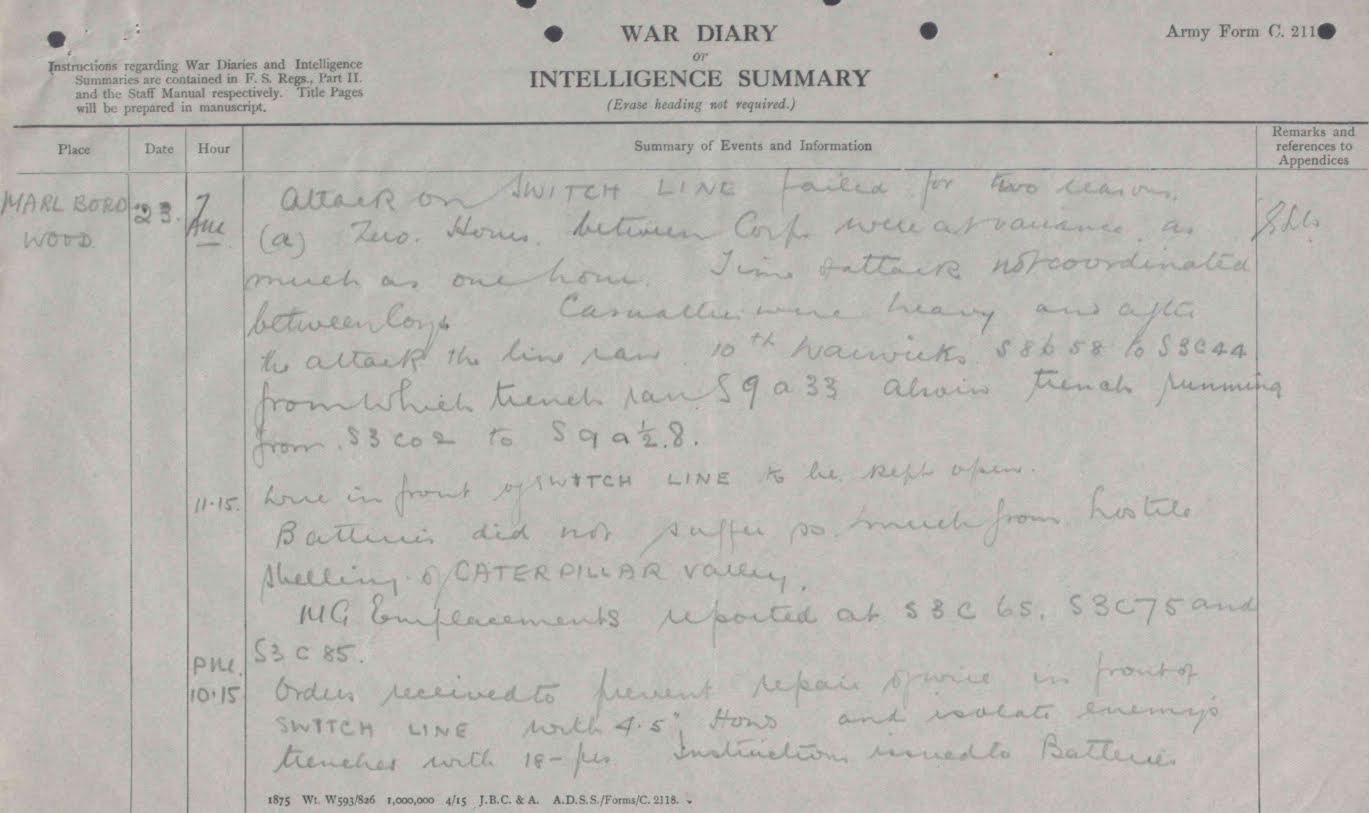 WAR DIARY
or
INTELLIGENCE SUMMARY
(Erase heading not required.)
Army Form C. 211
Instructions regarding War Diaries and Intelligence
Summaries are contained in F. S. Regs., Part II.
and the Staff Manual respectively. Title Pages
will be prepared in manuscript.
Place
Date
Hour
Summary of Events and Information
Remarks and
references to
Appendices
MARLBORO
WOOD
23.
7
AM
Attack on SWITCH LINE failed for two reasons.
(a) Zero. Hours. between Corps were at variance as
much as one hour. Time of attack not coordinated
between Corps Casualties were heavy and after
the attack the line ran 10th Warwicks S8b58 to S3C44
from which trench ran S9a33 also in trench running
from S3c02 to S9a½.8.
11.15.
Wire in front of SWITCH LINE to be kept open.
Batteries did not suffer so much from hostile
shelling of CATERPILLAR Valley.
MG Emplacements reported at S3C65. S3C75 and
S3C85.
PM.
10.15
Orders received to prevent repair of wire in front of
SWITCH LINE with 4.5" Hows and isolate enemy's
trenches with 18-prs Instructions issued to Batteries
1875 Wt. W593/826 1,000,000 4/15 J.B.C. & A. A.D.S.S./Forms/C. 2118.